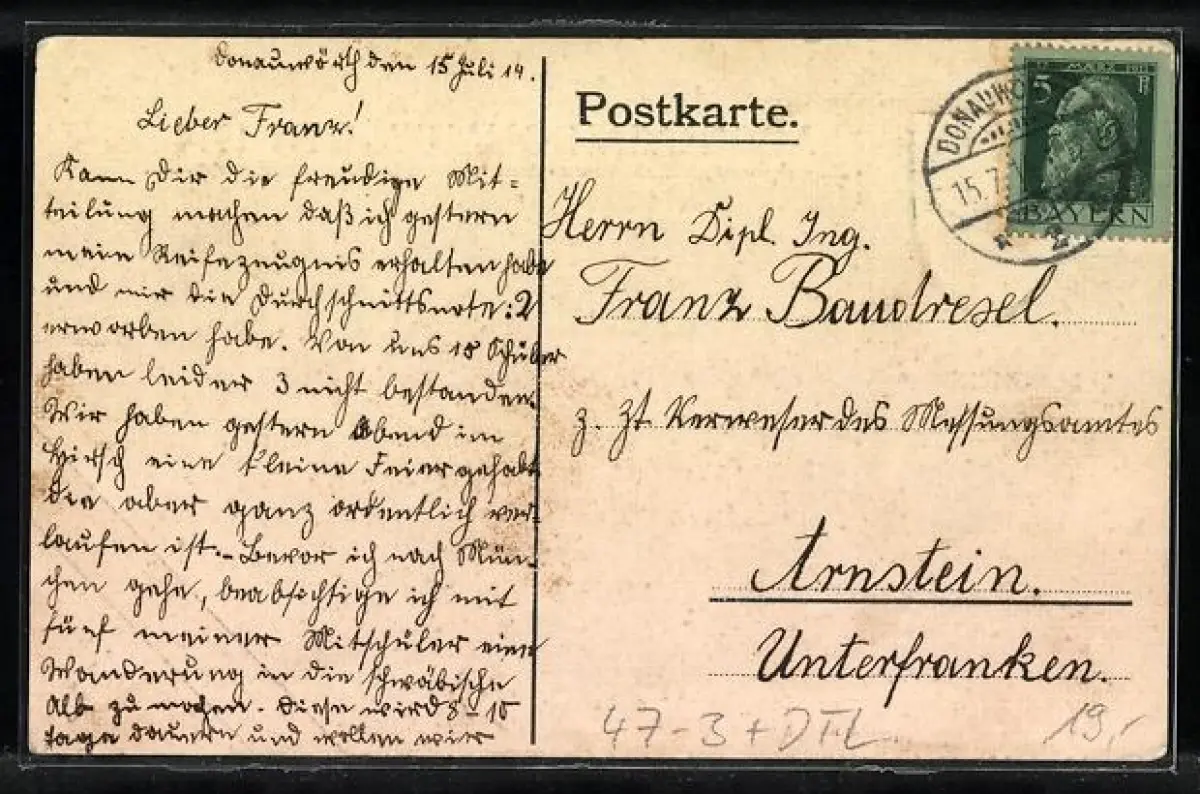 Donauwörth den 15 Juli 14.
Lieber Franz!
Kann Dir die freudige Mit=
teilung machen daß ich gestern
mein Reifezeugnis erhalten habe
und mir die Durchschnittsnote: 2
erworben habe. Von uns 18 Schüler
haben leider 3 nicht bestanden.
Wir haben gestern Abend im
Hirsch eine kleine Feier gehabt
die aber ganz ordentlich ver-
laufen ist. – Bevor ich nach Mün-
chen gehe, beabsichtige ich mit
fünf meiner Mitschüler eine
Wanderung in die schwäbische
Alb zu machen. Diese wird 8–10
Tage dauern und wollen wir
Postkarte.
Herrn Dipl. Ing.
Franz Baudresel.
z. Zt. Verweser des Messungsamtes
Arnstein.
Unterfranken.
47-3 + DFL
19,-
MÄRZ
5 P
BAYERN
DONAUWÖ
15.7
2